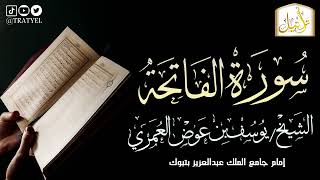 @TRATYEL
سُورَةُ الفَاتِحَة
الشيخ يوسف بن عوض العمري
إمام جامع الملك عبدالعزيز بتبوك